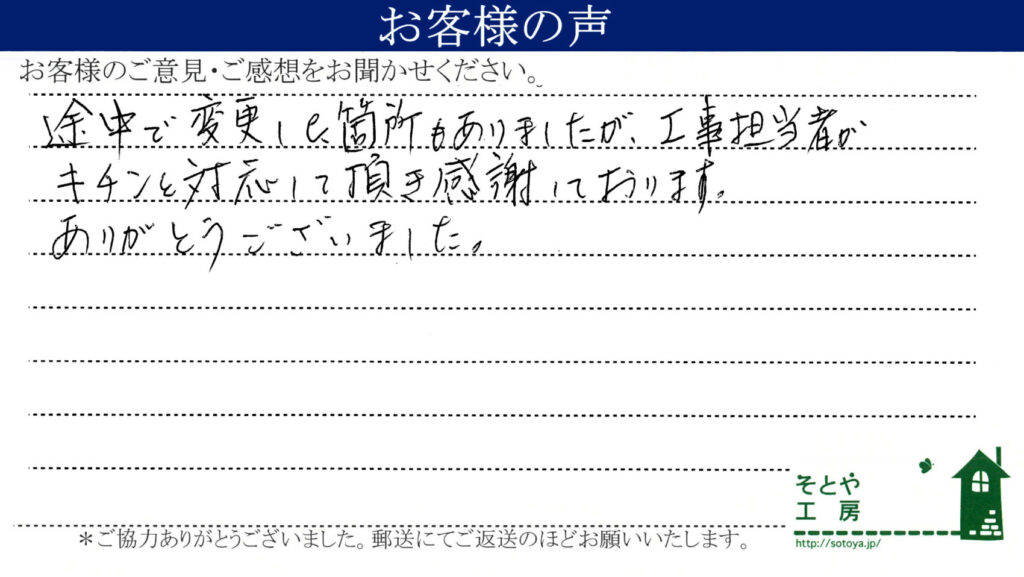 お客様の声
お客様のご意見・ご感想をお聞かせください。
途中で変更した箇所もありましたが、工事担当者が
キチンと対応して頂き感謝しております。
ありがとうございました。
そとや
工房
http://sotoya.jp/
＊ご協力ありがとうございました。郵送にてご返送のほどお願いいたします。